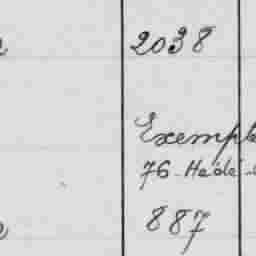 2038
Exempl
76 - Hédé -
887